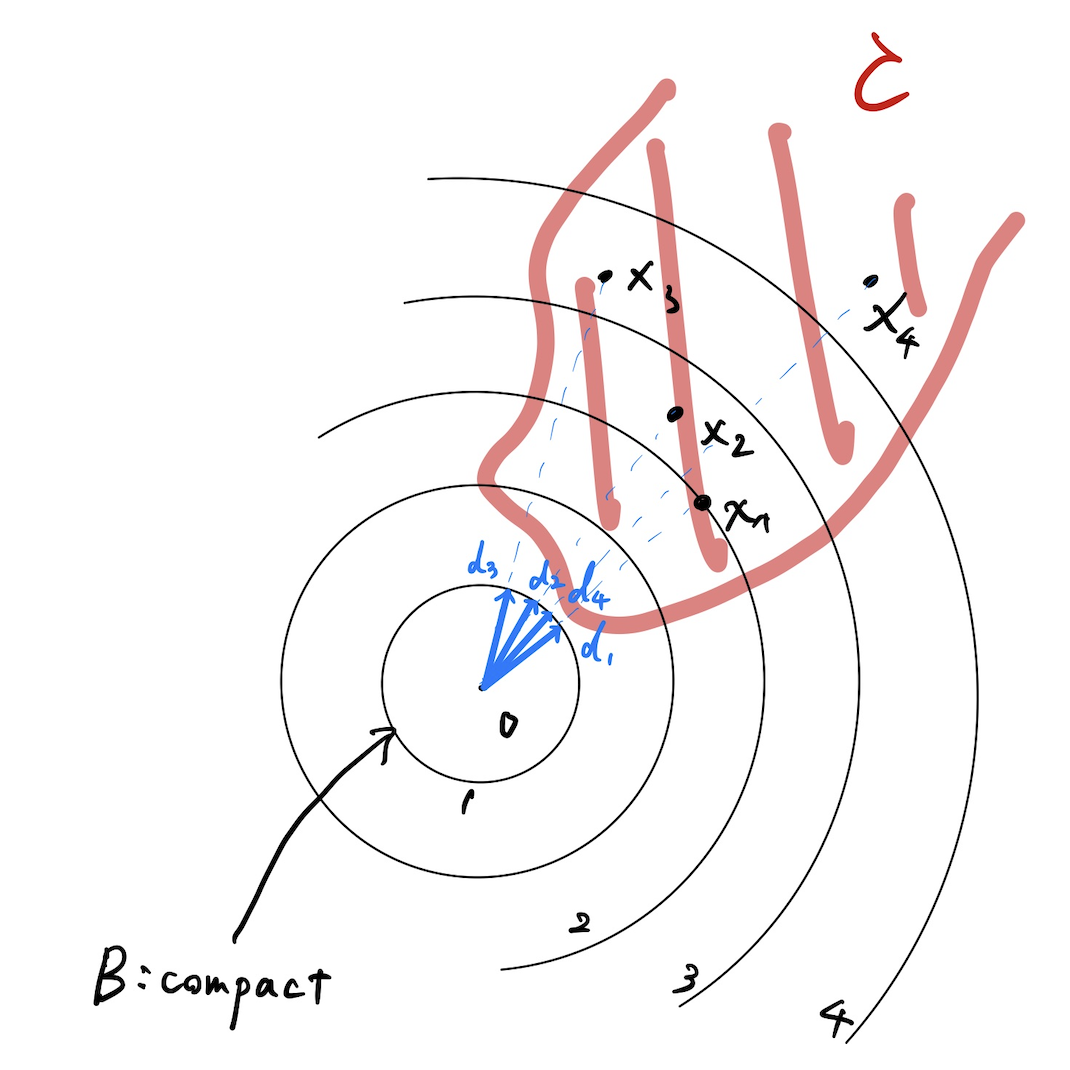 C
x3
x4
x2
x1
d3
d2
d4
d1
0
1
2
3
4
B:compact